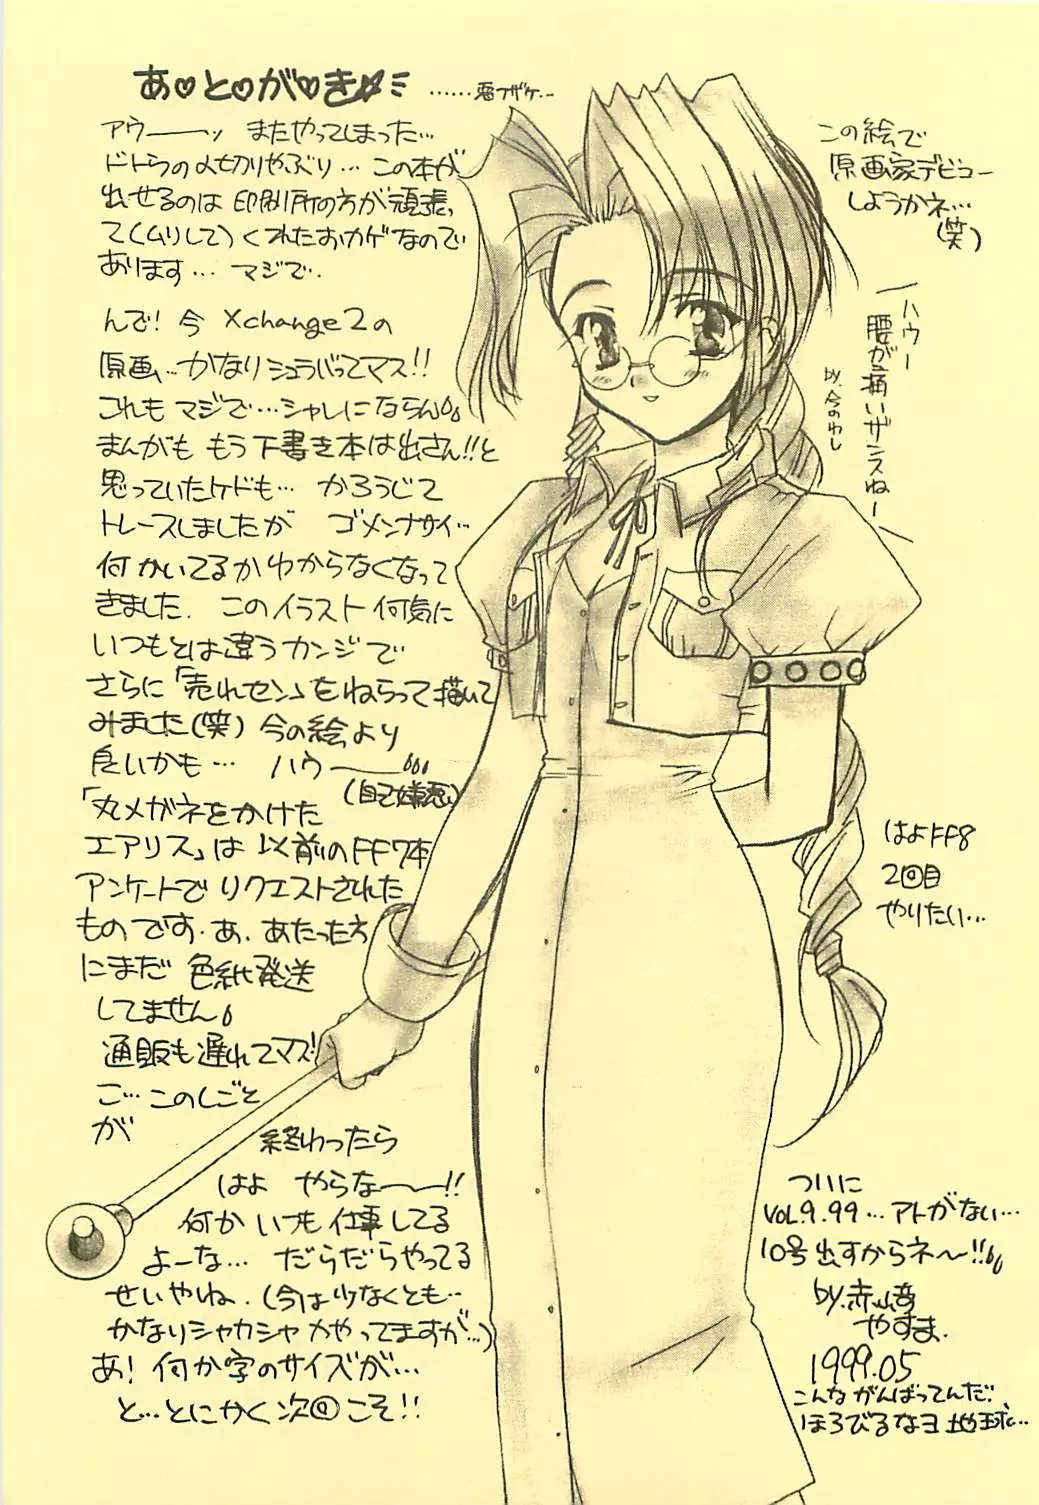 あ♡と♡が♡き☆
……悪フザケ…
アウーーッ またやってしまった…
ドトウの〆切りやぶり… この本が
出せるのは 印刷所の方が頑張っ
て(ムリして)くれたおカゲなので
あります… マジで.
んで! 今 Xchange2の
原画…かなりシュラバってマス!!
これも マジで…シャレにならん
まんがも もう下書き本は出さん!!と
思っていたケドも… かろうじて
トレースしましたが ゴメンナサイ…
何かいてるかわからなくなって
きました. このイラスト 何気に
いつもとは違うカンジで
さらに「売れセン」をねらって描いて
みました(笑) 今の絵より
良いかも… ハウーー
(自己嫌悪)
「丸メガネをかけた
エアリス」は以前のFF7本
アンケートでリクエストされた
ものです. あ. あたった方
にまだ 色紙発送
してません
通販も遅れてマス!
ご… このしごと
が
終わったら
はよ やらなーー!!
何か いつも 仕事してる
よーな… だらだらやってる
せいやね. (今は少なくとも…
かなりシャカシャカやってますが…)
あ! 何か字のサイズが…
と…とにかく次回こそ!!
この絵で
原画家デビュー
しようかネ…
(笑)
ハウー
腰が痛いザンスねー
by.今のわし
はよFF8
2回目
やりたい…
ついに
VOL.9.99…アトがない…
10号出すからネ〜!!
by.赤崎
やすま.
1999.05
こんながんばってんだ!
ほろびるなヨ 地球…